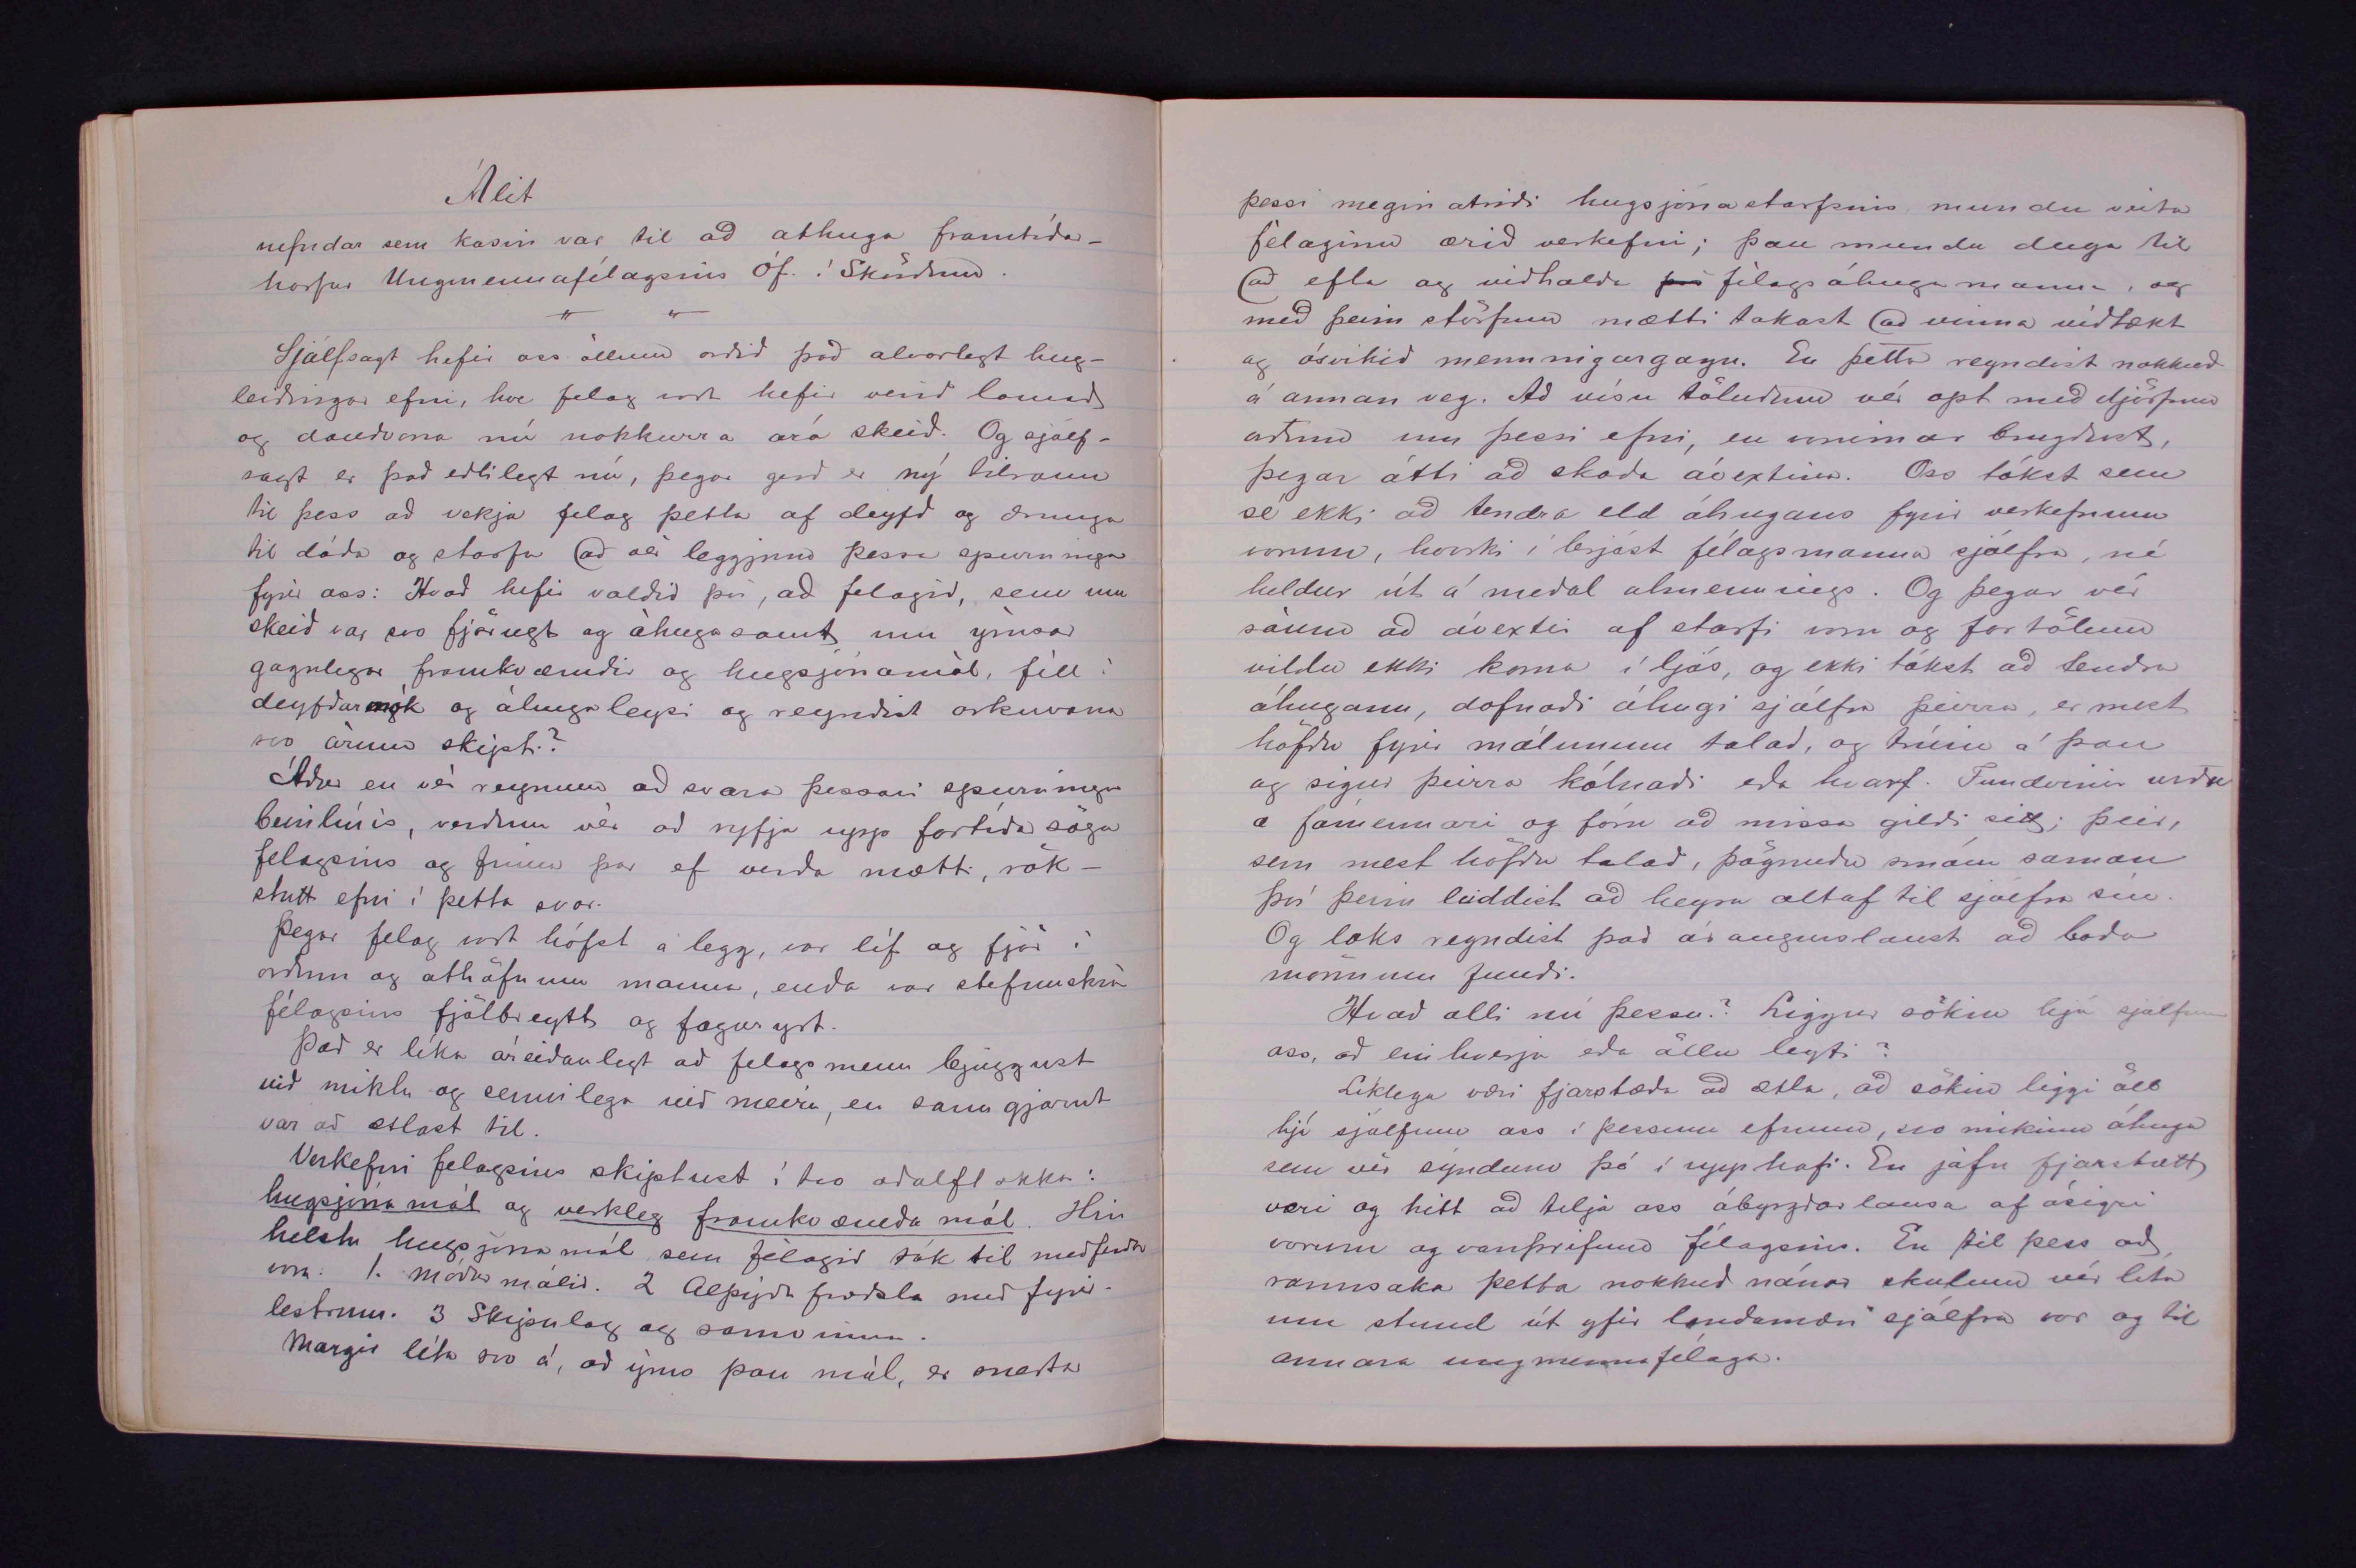 Álit
nefndar sem kosin var til að athuga framtíðar-
horfur Ungmennafélagsins Óf. í Skörðum.
" "
Sjálfsagt hefir oss öllum orðið það alvarlegt hug-
leiðingar efni, hve felag vort hefir verið lamað
og dauðvona nú nokkurra ára skeið. Og sjálf-
sagt er það eðlilegt nú, þegar gerð er ný tilraun
til þess að vekja felag þetta af deyfð og drunga
til dáða og starfa að vér leggjum þessa spurningu
fyrir oss: Hvað hefir valdið því, að felagið, sem um
skeið var svo fjörugt og áhugasamt um ýmsar
gagnlegar framkvæmdir og hugsjónamál, féll í
deyfðarmók og áhugaleysi og reyndist orkuvana
svo árum skipti?
Áður en vér reynum að svara þessari spurningu
beinlínis, verðum vér að ryfja upp fortíða sögu
felagsins og finna þar ef verða mætti, rök-
stutt efni í þetta svar.
Þegar felag vort hófst á legg, var líf og fjör í
orðum og athöfnum manna, enda var stefnuskrá
félagsins fjölbreytt og fagur yrt.
Það er líka áreiðanlegt að felagsmenn bjuggust
við miklu og sennilega við meiru, en sanngjarnt
var að ætlast til.
Verkefni felagsins skiptust í tvo aðalflokka:
hugsjónamál og verkleg framkvæmda mál. Hin
helstu hugsjónamál sem félagið tók til meðferðar
voru: 1. Móðurmálið. 2 Alþýðu fræðsla með fyrir-
lestrum. 3 Skipulag og samvinna.
Margir litu svo á, að ýms þau mál, er snerta
þessi megin atriði hugsjónastarfsins, mundu veita
félaginu ærið verkefni; þau mundu duga til
að efla og viðhalda félagsáhuga manna, og
með þeim störfum mætti takast að vinna víðtækt
og ósvikið menningargagn. En þetta reyndist nokkuð
á annan veg. Að vísu töluðum vér opt með djörfum
orðum um þessi efni, en vonirnar brugðust,
þegar átti að skoða ávextina. Oss tókst sem
sé ekki að tendra eld áhugans fyrir verkefnum
vorum, hvorki í brjóst félagsmanna sjálfra, né
heldur út á meðal almennings. Og þegar vér
sáum að ávextir af starfi voru og fortölum
vildu ekki koma í ljós, og ekki tókst að tendra
áhugann, dofnaði áhugi sjálfra þeirra, er mest
höfðu fyrir málunum talað, og trúin á þau
og sigur þeirra kólnaði eða hvarf. Fundirnir urðu
æ fámennari og fóru að missa gildi sitt; þeir,
sem mest höfðu talað, þögnuðu smám saman
því þeim leiddist að heyra altaf til sjálfra sín.
Og loks reyndist það árangurslaust að boða
mönnum fundi.
Hvað olli nú þessu? Liggur sökin hjá sjálfum
oss, að einhverju eða öllu leyti?
Líklega væri fjarstæða að ætla, að sökin liggi öll
hjá sjálfum oss í þessum efnum, svo mikinn áhuga
sem vér sýndum þó í upphafi. En jafn fjarstætt
væri og hitt að telja oss ábyrgðarlausa af ósigri
vorum og vanþrifum félagsins. En til þess að
rannsaka þetta nokkuð nánar skulum vér líta
um stund út yfir landamæri sjálfra vor og til
annara ungmennafélaga.